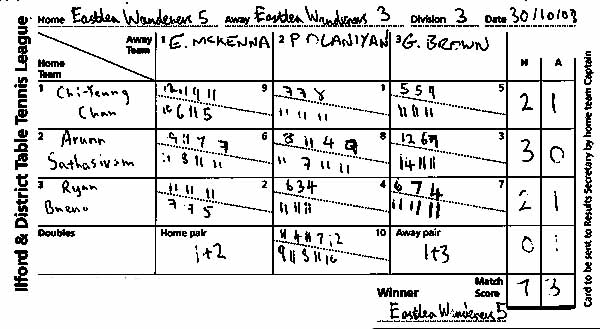 Home Eastlea Wanderers 5 Away Eastlea Wanderers 3 Division 3 Date 30/10/03
Ilford & District Table Tennis League
Away Team 1 E. MCKENNA 2 P OLANIYAN 3 G. BROWN H A
Home Team
1 Chi-Yeung Chan 9 1 5 2 1
7 7 8 5 5 9
11 6 11 5 11 11 11 11 11 11
2 Arunn Sathasivam 6 8 3 3 0
9 11 7 7 8 11 4 9 12 6 9
11 8 11 11 11 7 11 11 14 11 11
3 Ryan Bueno 2 4 7 2 1
11 11 11 6 3 4 6 7 4
7 7 5 11 11 11 11 11 11
Doubles Home pair 10 Away pair 0 1
1+2 11 4 11 7 12 1+3
9 11 5 11 10
Winner Match Score 7 3
Eastlea Wanderers 5
Card to be sent to Results Secretary by home team Captain